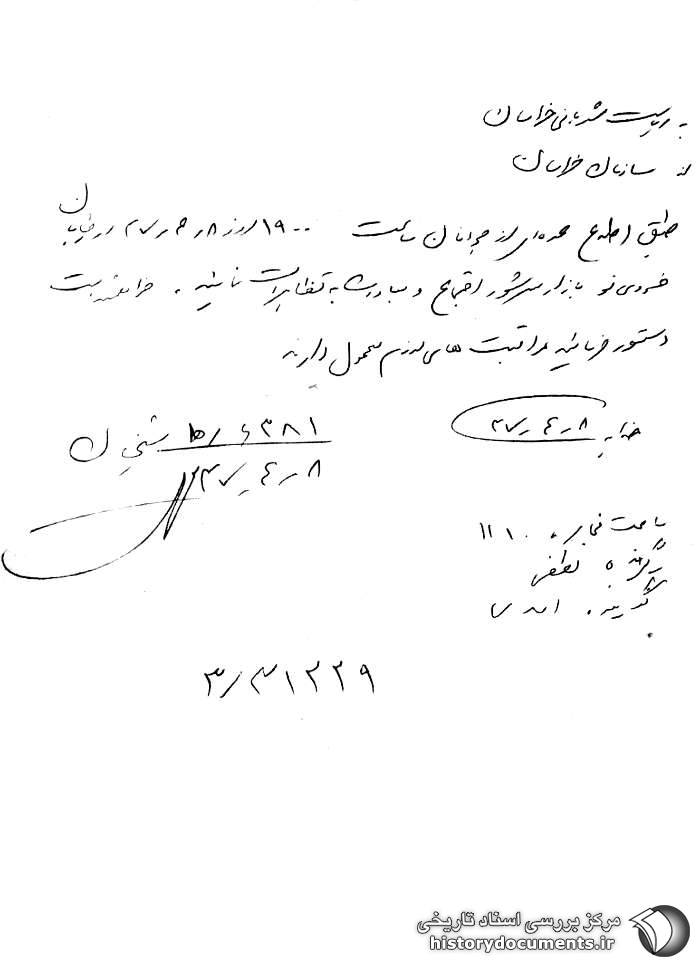 به ریاست شهربانی خراسان
از سازمان خراسان
طبق اطلاع عده‌ای از جوانان ساعت ۱۹۰۰ روز ۸ ر ۴ ر ۳۷ در خیابان
خسروی نو بازار سرشور اجتماع و مبادرت به تظاهرات نمایند. خواهشمند است
دستور فرمائید مراقبت های لازم معمول دارند
۸ ر ۴ ر ۳۷
۳۸۱
۸ ر ۴ ر ۳۷
ساعت مخابره ۱۱۱۰
گیرنده لطفی
گوینده
۳/۳۱۲۲۹
مرکز بررسی اسناد تاریخی
historydocuments.ir